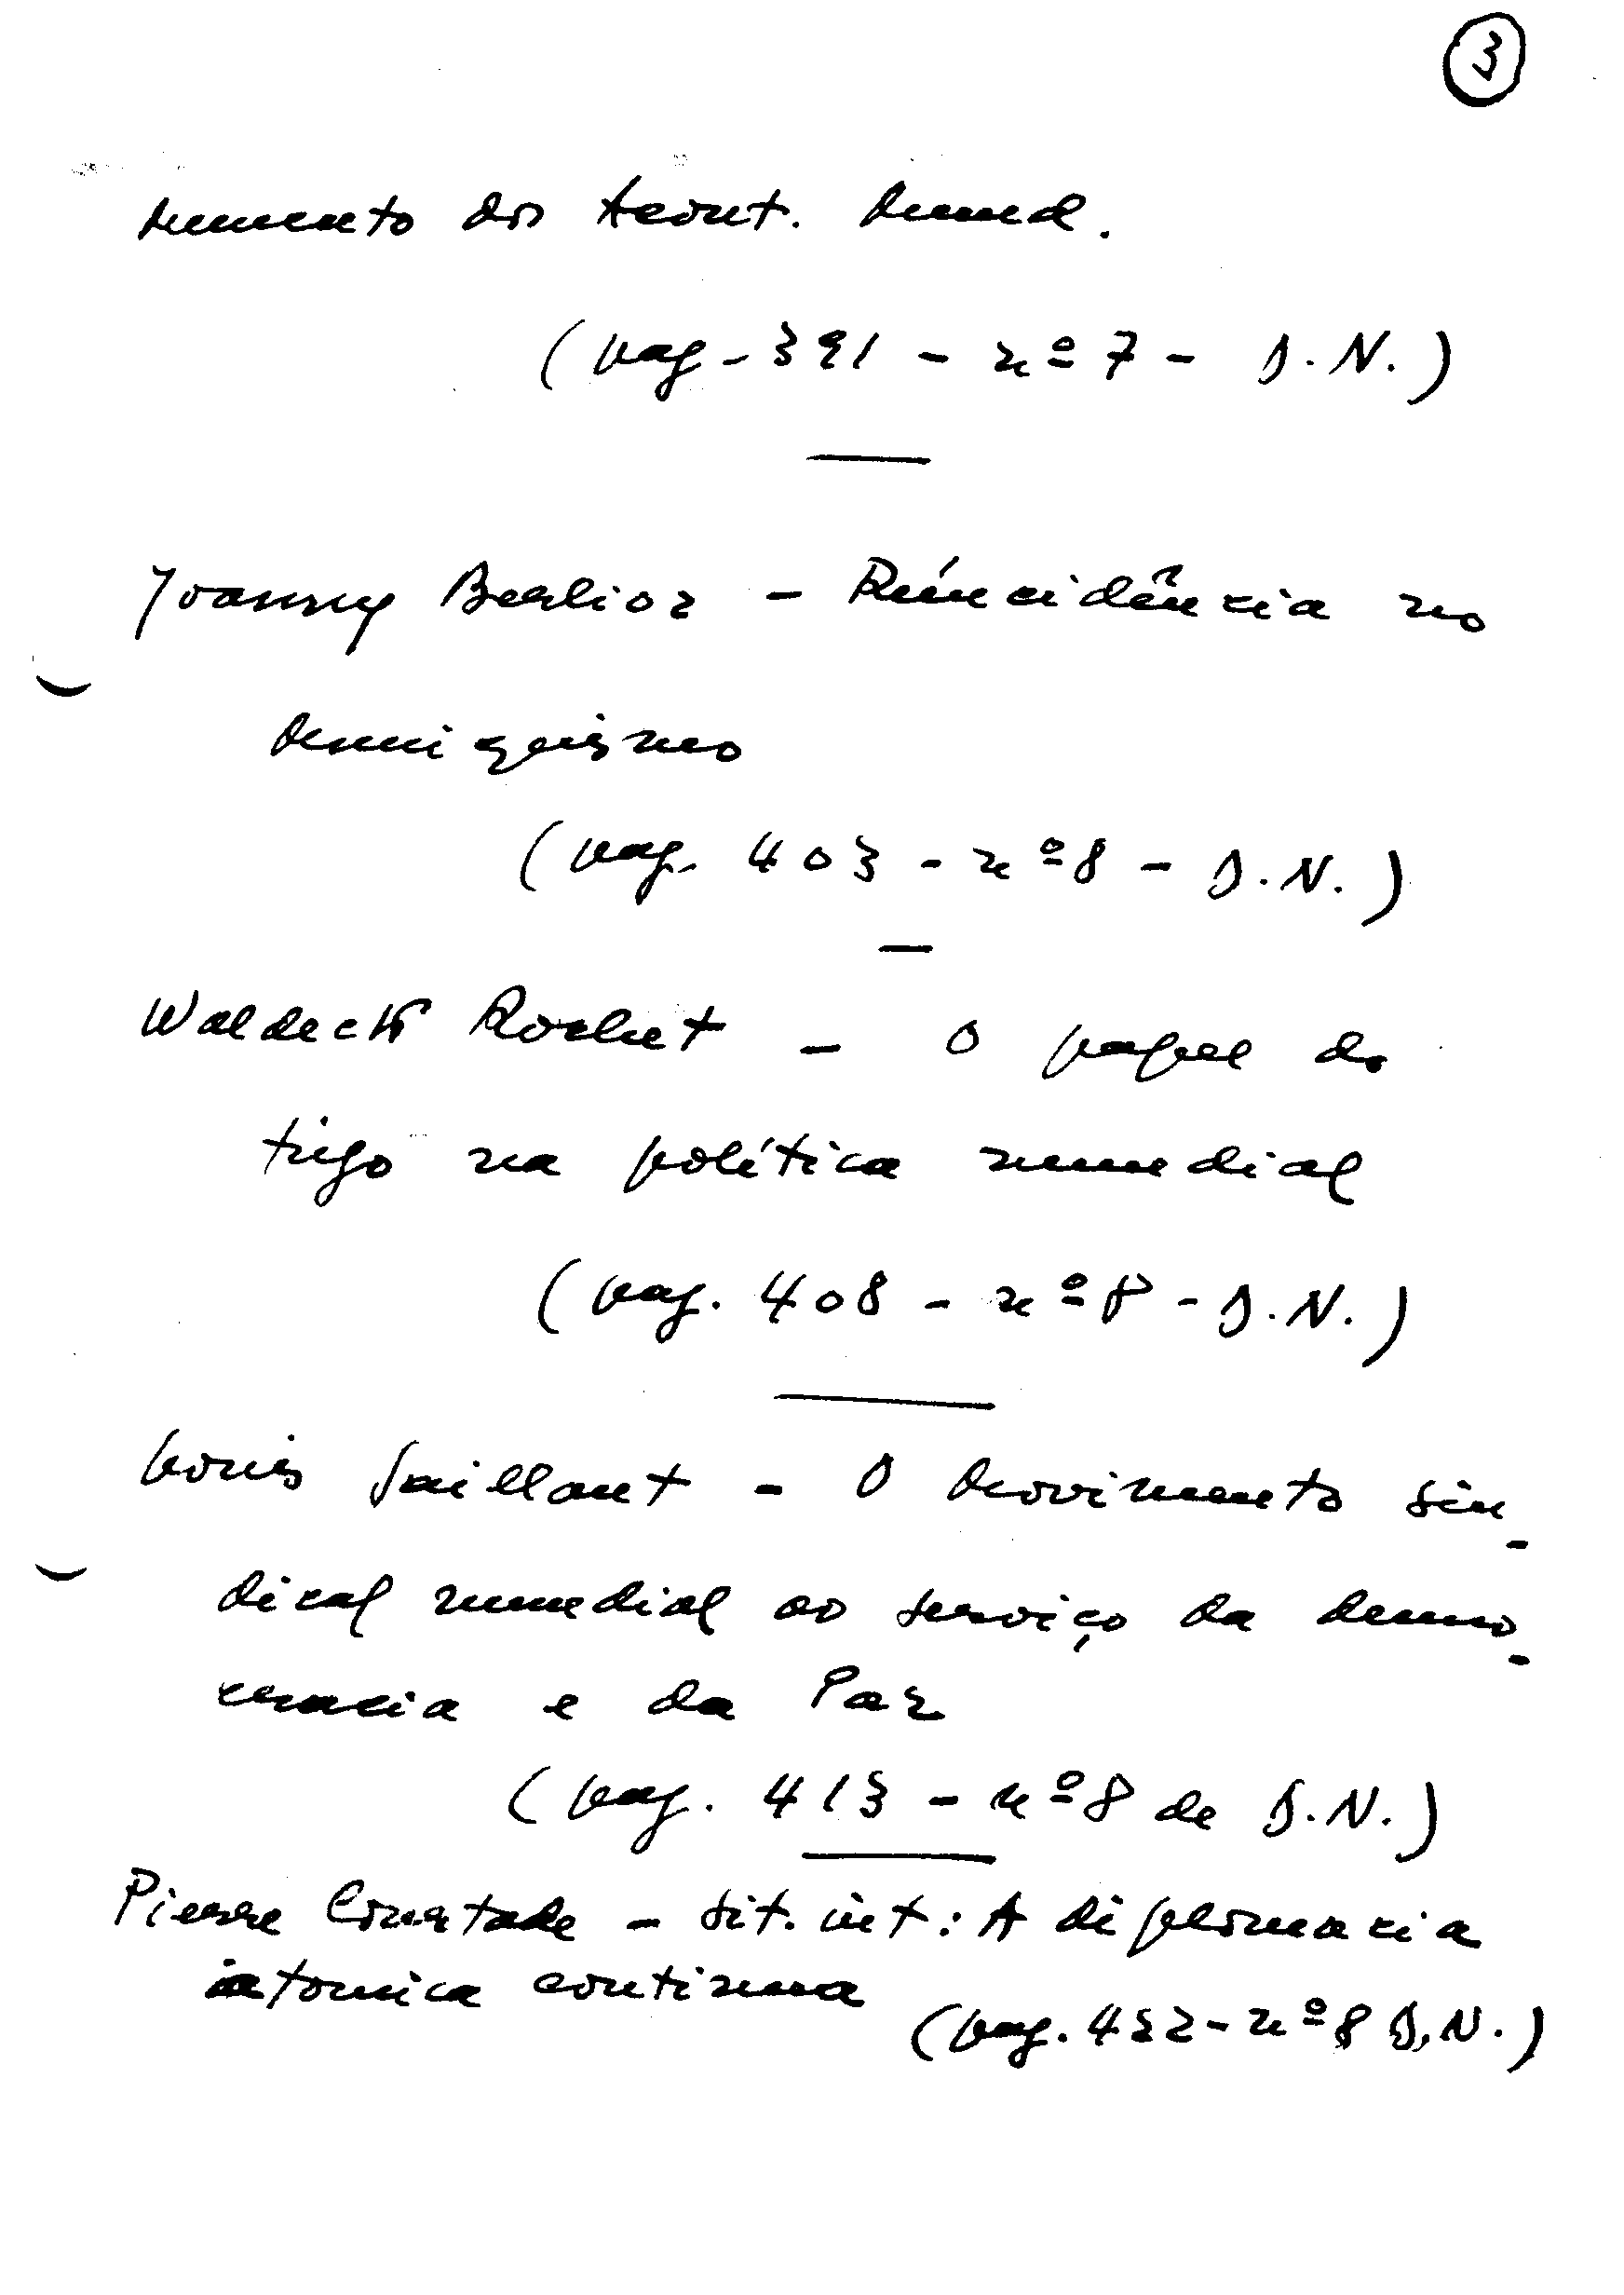 3
dos Acont. Mund.
(pag. 391 - nº 7 - D.N.)
Joanny Berlioz - Reincidência no
muniquismo
(pag. 403 - nº 8 - D.N.)
Waldeck Rochet - O papel do
trigo na política mundial
(pag. 408 - nº 8 - D.N.)
Louis Saillant - O Movimento sin-
dical mundial ao serviço da demo-
cracia e da Paz
(pag. 413 - nº 8 de D.N.)
Pierre Courtade - Sit. int: A diplomacia
atomica continua (pag. 422 - nº 8 D.N.)